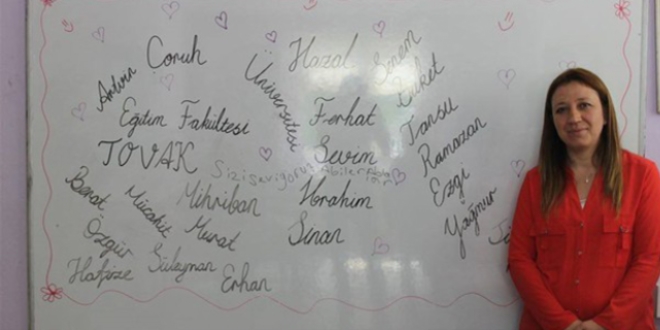 Artvin
Çoruh
Üniversitesi
Eğitim Fakültesi
TOVAK
Sizi Seviyoruz
Hazal
Senem
Buket
Ferhat
Tansu
Sevim
Ramazan
İbrahim
Ezgi
Yağmur
Sinan
Berat
Mücahit
Mihriban
Özgür
Murat
Hafize
Süleyman
Erhan